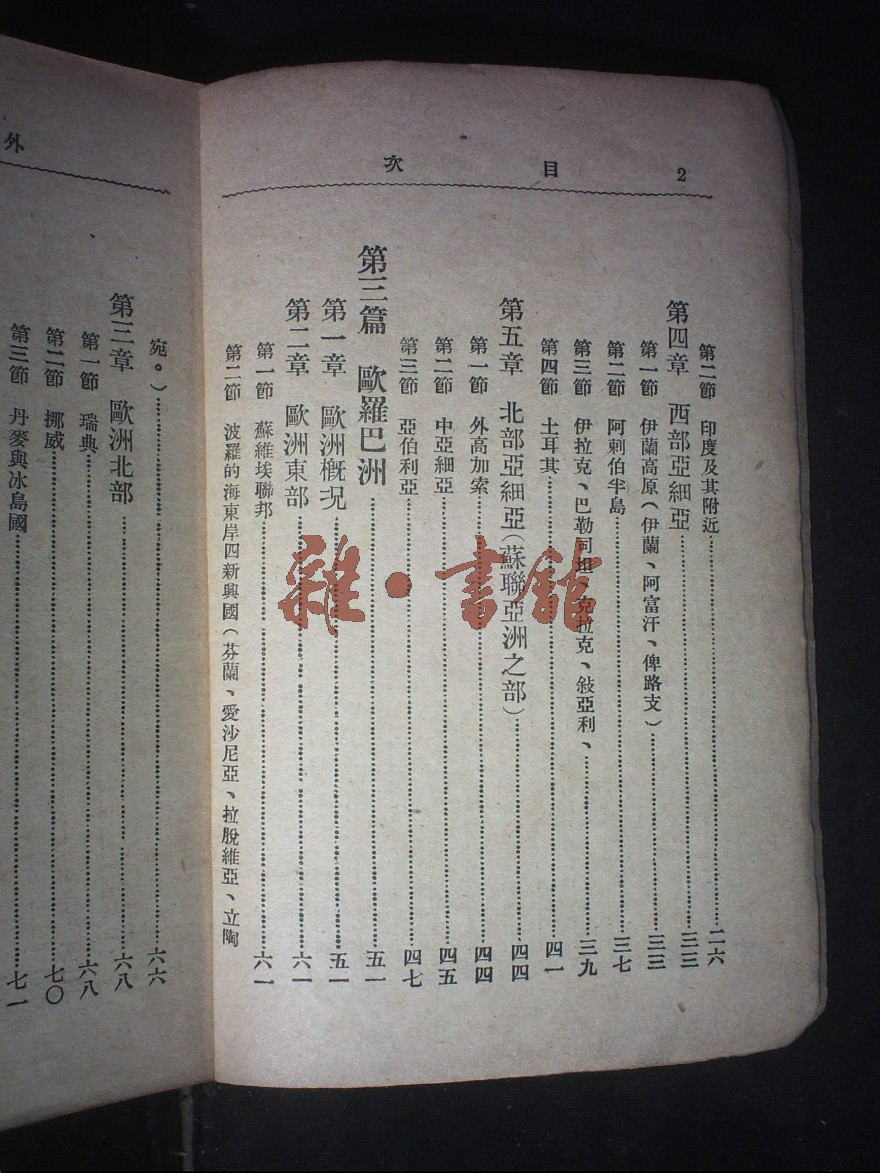 2 目次
第二節 印度及其附近……二六
第四章 西部亞細亞……三三
第一節 伊蘭高原(伊蘭、阿富汗、俾路支)……三三
第二節 阿剌伯半島……三七
第三節 伊拉克、巴勒司坦、克拉克、敍亞利、……三九
第四節 土耳其……四一
第五章 北部亞細亞(蘇聯亞洲之部)……四四
第一節 外高加索……四四
第二節 中亞細亞……四五
第三節 亞伯利亞……四七
第三篇 歐羅巴洲……五一
第一章 歐洲概況……五一
第二章 歐洲東部……六一
第一節 蘇維埃聯邦……六一
第二節 波羅的海東岸四新興國(芬蘭、愛沙尼亞、拉脫維亞、立陶
外
宛。)……六六
第三章 歐洲北部……六八
第一節 瑞典……六八
第二節 挪威……七〇
第三節 丹麥與冰島國……七一
雜·書館